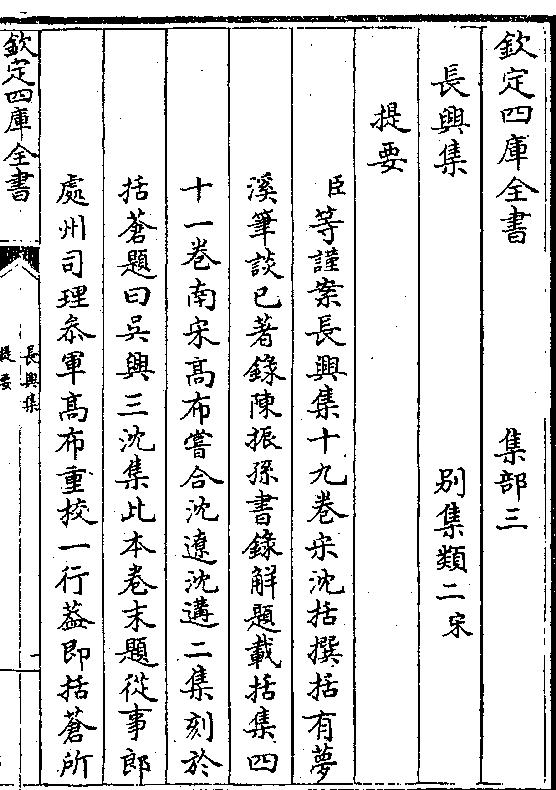 欽定四庫全書　集部三
長興集　別集類二宋
提要
臣等謹案長興集十九卷宋沈括撰括有夢
溪筆談已著錄陳振孫書錄解題載括集四
十一卷南宋高布嘗合沈遼沈遘二集刻於
括蒼題曰吳興三沈集此本卷末題從事郎
處州司理叅軍髙布重挍一行葢即括蒼所
欽定四庫全書
長興集
提要